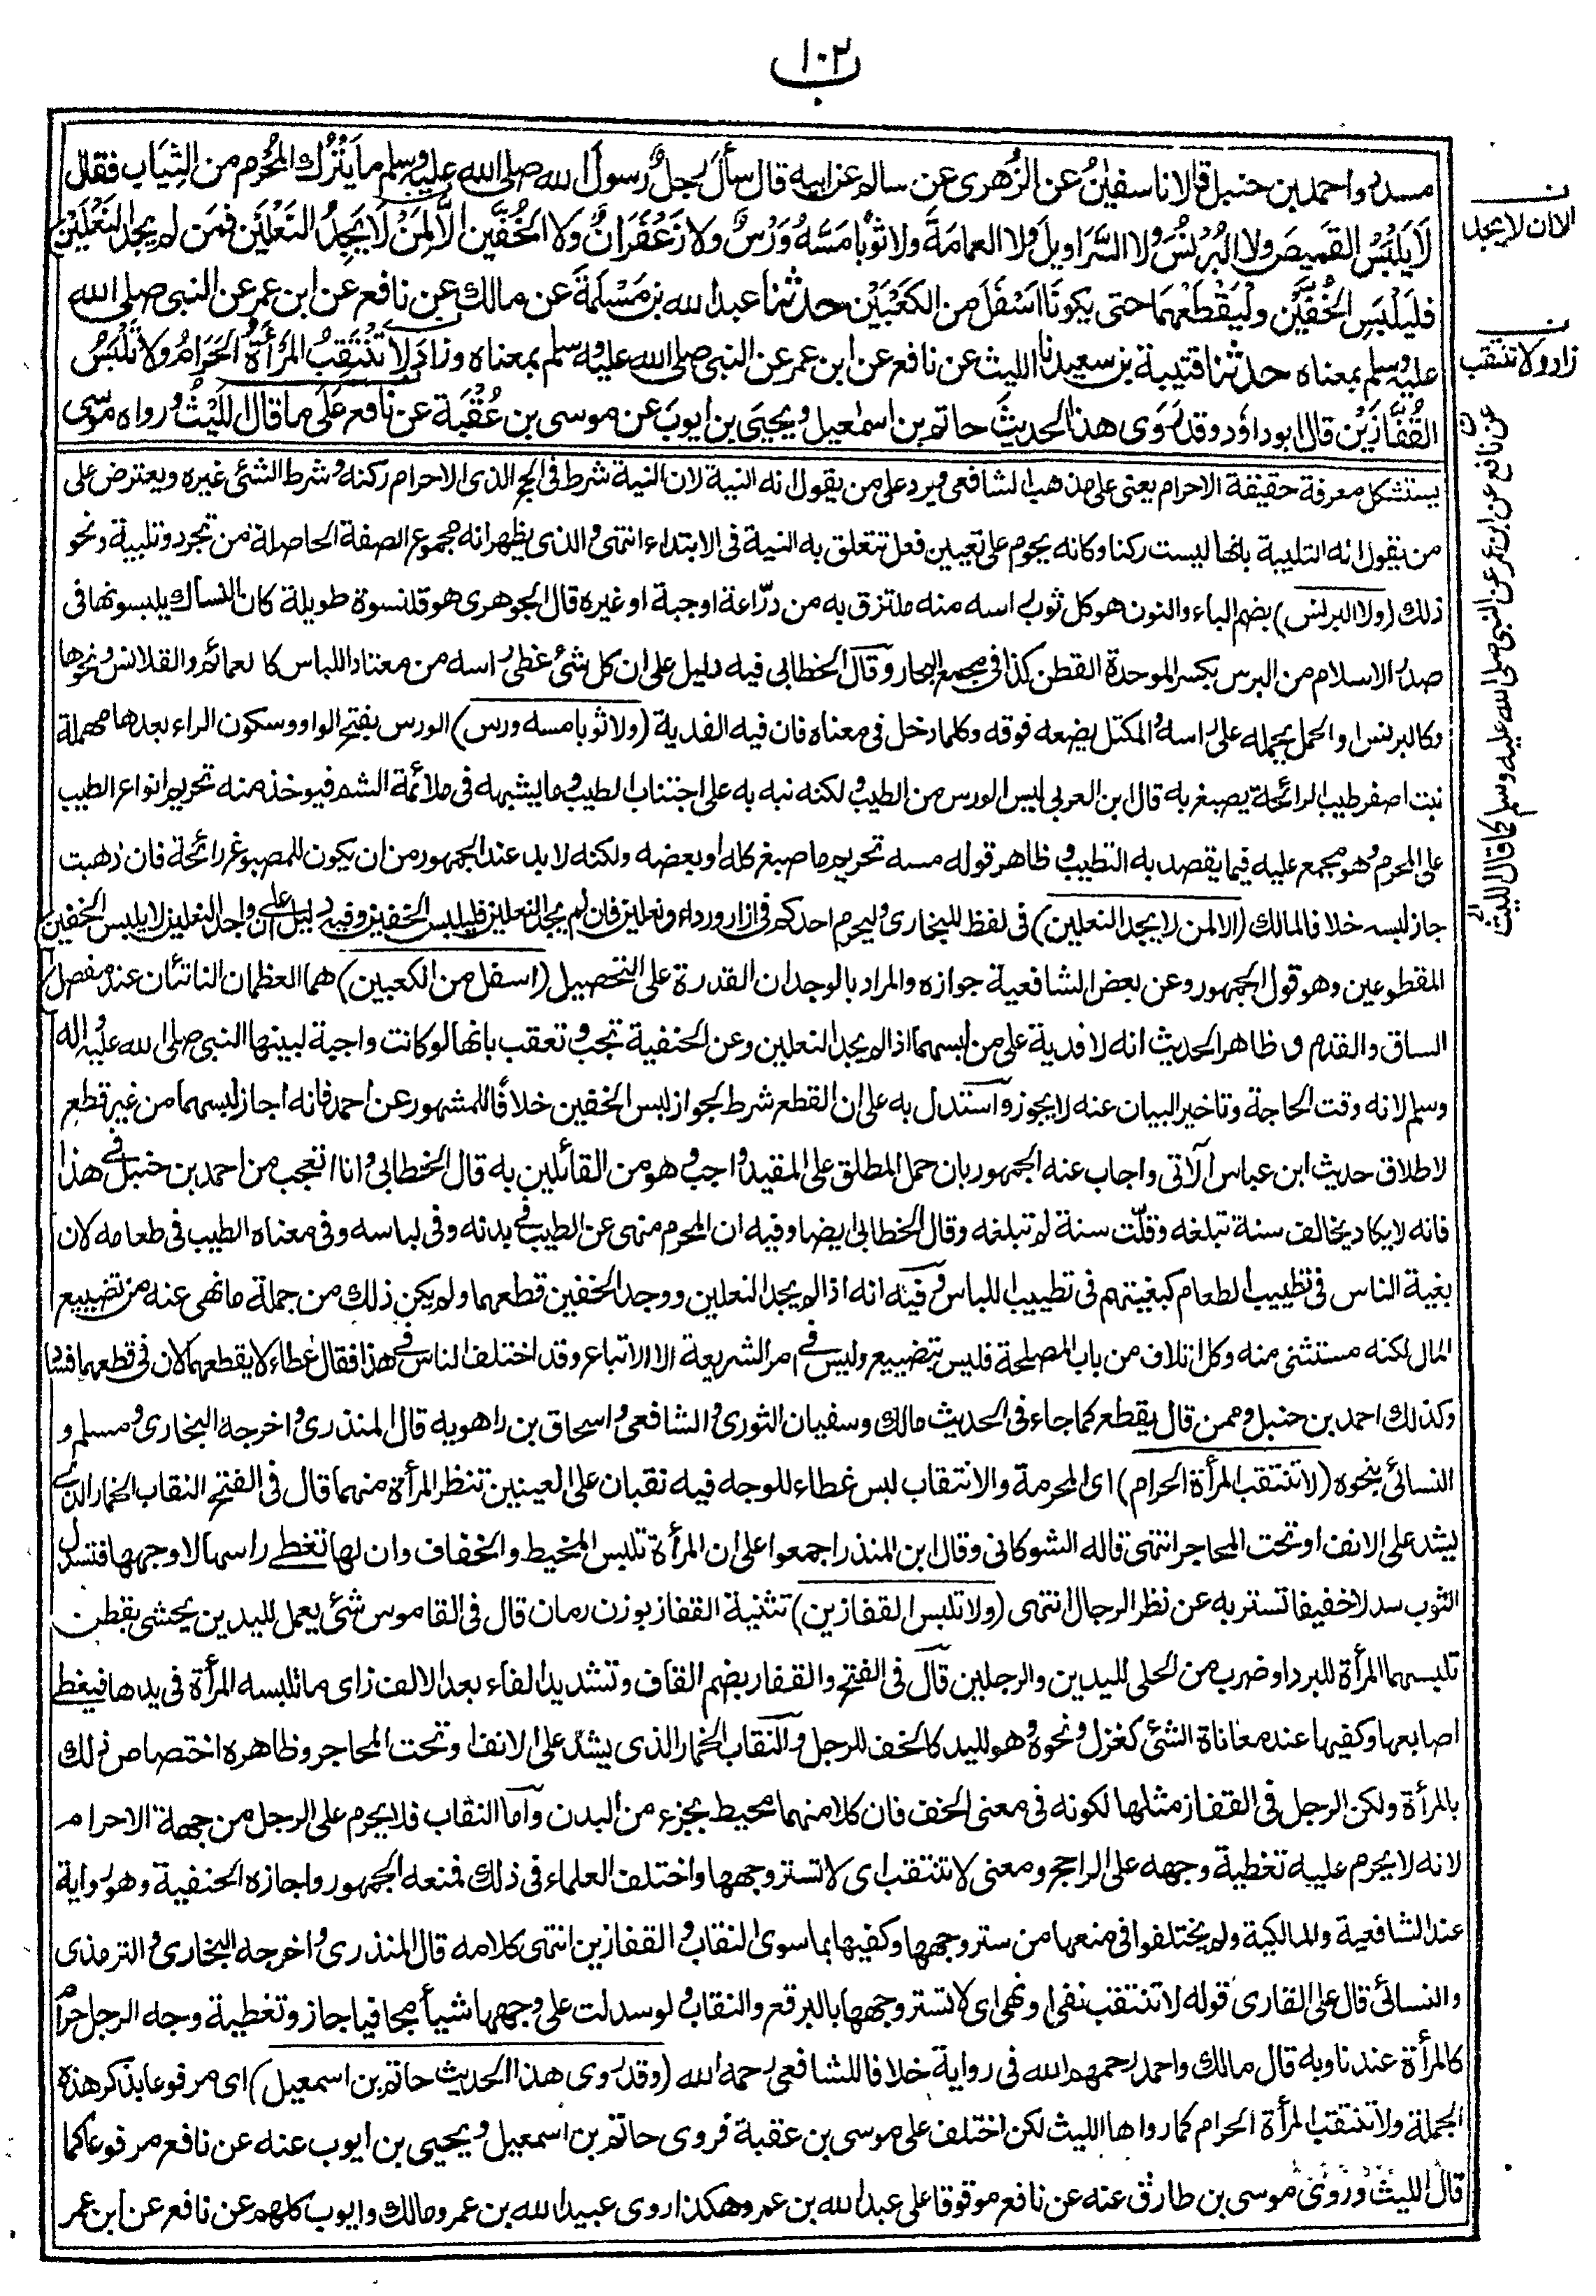 ١٠٢
مسدد واحمد بن حنبل قالا نا سفيٰن عن الزُّهرى عن سالم عن ابيه قال سأل رجلٌ رسولَ الله صلى الله عليه وسلم ما يَتْرُك المُحْرِم من الثِيَاب فقال
لَا يَلْبَسُ القميصَ ولا البُرْنُسَ ولا السَّرَاويلَ ولا العمامَةَ ولا ثوبًا مَسَّهُ وَرْسٌ ولا زَعْفَرَانٌ ولا الخُفَّين الَّا لِمَنْ لَا يَجِدُ النَّعْلَيْن فمَن لم يجد النَعْلَيْن
فَليَلْبَسِ الخُفَّيْن ولْيَقْطَعْهُمَا حتى يكونَا اَسْفَلَ من الكَعْبَيْن حدثنا عبد الله بن مَسْلَمَةَ عن مالك عن نافع عن ابن عمر عن النبى صلى الله
عليه وسلم بمعناه حدثنا قتيبة بن سعيد نا الليث عن نافع عن ابن عمر عن النبى صلى الله عليه وسلم بمعناه وزادَ لا تَنْتَقِبُ المَرْأَةُ الحَرَامُ ولا تَلْبَسُ
القُفَّازَيْن قال ابو داؤد وقد رَوَى هذا الحديثَ حاتم بن اسمٰعيل ويحيَى بن ايوبَ عن موسى بن عُقْبَة عن نافع عَلَى ما قال اللَّيْثُ ورواه موسى
الا ان لا يجد
زاد ولا تنتقب
عن نافع عن ابن عمر عن النبى صلى الله عليه وسلم كما قال الليث
يستشكل معرفة حقيقة الاحرام يعنى على مذهب الشافعى ويرد على من يقول انه النية لان النية شرط فى الحج الذى الاحرام ركنه وشرط الشئى غيره ويعترض على
من يقول انه التلبية بانها ليست ركنا وكانه يحوم على تعيين فعل تتعلق به النية فى الابتداء انتهى والذى يظهر انه مجموع الصفة الحاصلة من تجرد وتلبية ونحو
ذلك (ولا البرنس) بضم الباء والنون هو كل ثوب راسه منه ملتزق به من درّاعة او جبة او غيره قال الجوهرى هو قلنسوة طويلة كان النساك يلبسونها فى
صدر الاسلام من البرس بكسر الموحدة القطن كذا فى مجمع البحار وقال الخطابى فيه دليل على ان كل شئ غطى راسه من معتاد اللباس كالعمائم والقلانس ونحوها
وكالبرنس او الحمل يحمله على راسه والمكتل يضعه فوقه وكلما دخل فى معناه فان فيه الفدية (ولا ثوبا مسه ورس) الورس بفتح الواو وسكون الراء بعدها مهملة
نبت اصفر طيب الرائحة يصبغ به قال ابن العربى ليس الورس من الطيب ولكنه نبه به على اجتناب الطيب وما يشبهه فى ملائمة الشم فيوخذ منه تحريم انواع الطيب
على المحرم وهو مجمع عليه فيما يقصد به التطيب وظاهر قوله مسه تحريم ما صبغ كله او بعضه ولكنه لا بد عند الجمهور من ان يكون للمصبوغ رائحة فان ذهبت
جاز لبسه خلافا لمالك (الا لمن لا يجد النعلين) فى لفظ للبخارى وليحرم احدكم فى ازار ورداء ونعلين فان لم يجد النعلين فليلبس الخفين وفيه دليل على ان واجد النعلين لا يلبس الخفين
المقطوعين وهو قول الجمهور وعن بعض الشافعية جوازه والمراد بالوجدان القدرة على التحصيل (اسفل من الكعبين) هما العظمان الناتئان عند مفصل
الساق والقدم وظاهر الحديث انه لا فدية على من لبسهما اذا لم يجد النعلين وعن الحنفية تجب وتعقب بانها لو كانت واجبة لبينها النبى صلى الله عليه واله
وسلم لانه وقت الحاجة وتاخير البيان عنه لا يجوز واستدل به على ان القطع شرط لجواز لبس الخفين خلافًا للمشهور عن احمد فانه اجاز لبسهما من غير قطع
لاطلاق حديث ابن عباس الآتى واجاب عنه الجمهور بان حمل المطلق على المقيد واجب وهو من القائلين به قال الخطابى وانا اتعجب من احمد بن حنبل فى هذا
فانه لا يكاد يخالف سنة تبلغه وقلّت سنة لم تبلغه وقال الخطابى ايضا وفيه ان المحرم منهى عن الطيب فى بدنه وفى لباسه وفى معناه الطيب فى طعامه لان
بغية الناس فى تطييب الطعام كبغيتهم فى تطييب اللباس وفيه انه اذا لم يجد النعلين ووجد الخفين قطعهما ولم يكن ذلك من جملة ما نهى عنه من تضييع
المال لكنه مستثنى منه وكل اتلاف من باب المصلحة فليس بتضييع وليس فى امر الشريعة الا الاتباع وقد اختلف الناس فى هذا فقال عطاء لا يقطعهما لان فى قطعهما فسادا
وكذلك احمد بن حنبل وممن قال يقطع كما جاء فى الحديث مالك وسفيان الثورى والشافعى واسحاق بن راهويه قال المنذرى واخرجه البخارى ومسلم و
النسائى بنحوه (لا تنتقب المرأة الحرام) اى المحرمة والانتقاب لبس غطاء للوجه فيه نقبان على العينين تنظر المرأة منهما قال فى الفتح النقاب الخمار الذى
يشد على الانف او تحت المحاجر انتهى قاله الشوكانى وقال ابن المنذر اجمعوا على ان المرأة تلبس المخيط والخفاف وان لها تغطى راسها لا وجهها فتسدل
الثوب سدلا خفيفا تستتر به عن نظر الرجال انتهى (ولا تلبس القفازين) تثنية القفاز بوزن رمان قال فى القاموس شئى يعمل لليدين يحشى بقطن
تلبسهما المرأة للبرد او ضرب من الحلى لليدين والرجلين قال فى الفتح والقفاز بضم القاف وتشديد الفاء بعد الالف زاى ما تلبسه المرأة فى يدها فيغطى
اصابعها وكفيها عند معاناة الشئى كغزل ونحوه وهو لليد كالخف للرجل والنقاب الخمار الذى يشدّ على الانف او تحت المحاجر وظاهره اختصاص ذلك
بالمرأة ولكن الرجل فى القفاز مثلها لكونه فى معنى الخف فان كلا منهما محيط بجزء من البدن واما النقاب فلا يحرم على الرجل من جهة الاحرام
لانه لا يحرم عليه تغطية وجهه على الراجح ومعنى لا تنتقب اى لا تستر وجهها واختلف العلماء فى ذلك فمنعه الجمهور واجازه الحنفية وهو رواية
عند الشافعية والمالكية ولم يختلفوا فى منعها من ستر وجهها وكفيها بما سوى النقاب والقفازين انتهى كلامه قال المنذرى واخرجه البخارى والترمذى
والنسائى قال على القارى قوله لا تنتقب نفى او نهى اى لا تستر وجهها بالبرقع والنقاب ولو سدلت على وجهها شيأ مجافيا جاز وتغطية وجه الرجل حرام
كالمرأة عندنا وبه قال مالك واحمد رحمهم الله فى رواية خلافا للشافعى رحمه الله (وقد روى هذا الحديث حاتم بن اسمعيل) اى مرفوعا بذكر هذه
الجملة ولا تنتقب المرأة الحرام كما رواها الليث لكن اختلف على موسى بن عقبة فروى حاتم بن اسمعيل ويحيى بن ايوب عنه عن نافع مرفوعا كما
قال الليث وروى موسى بن طارق عنه عن نافع موقوفا على عبد الله بن عمر وهكذا روى عبيد الله بن عمر ومالك وايوب كلهم عن نافع عن ابن عمر